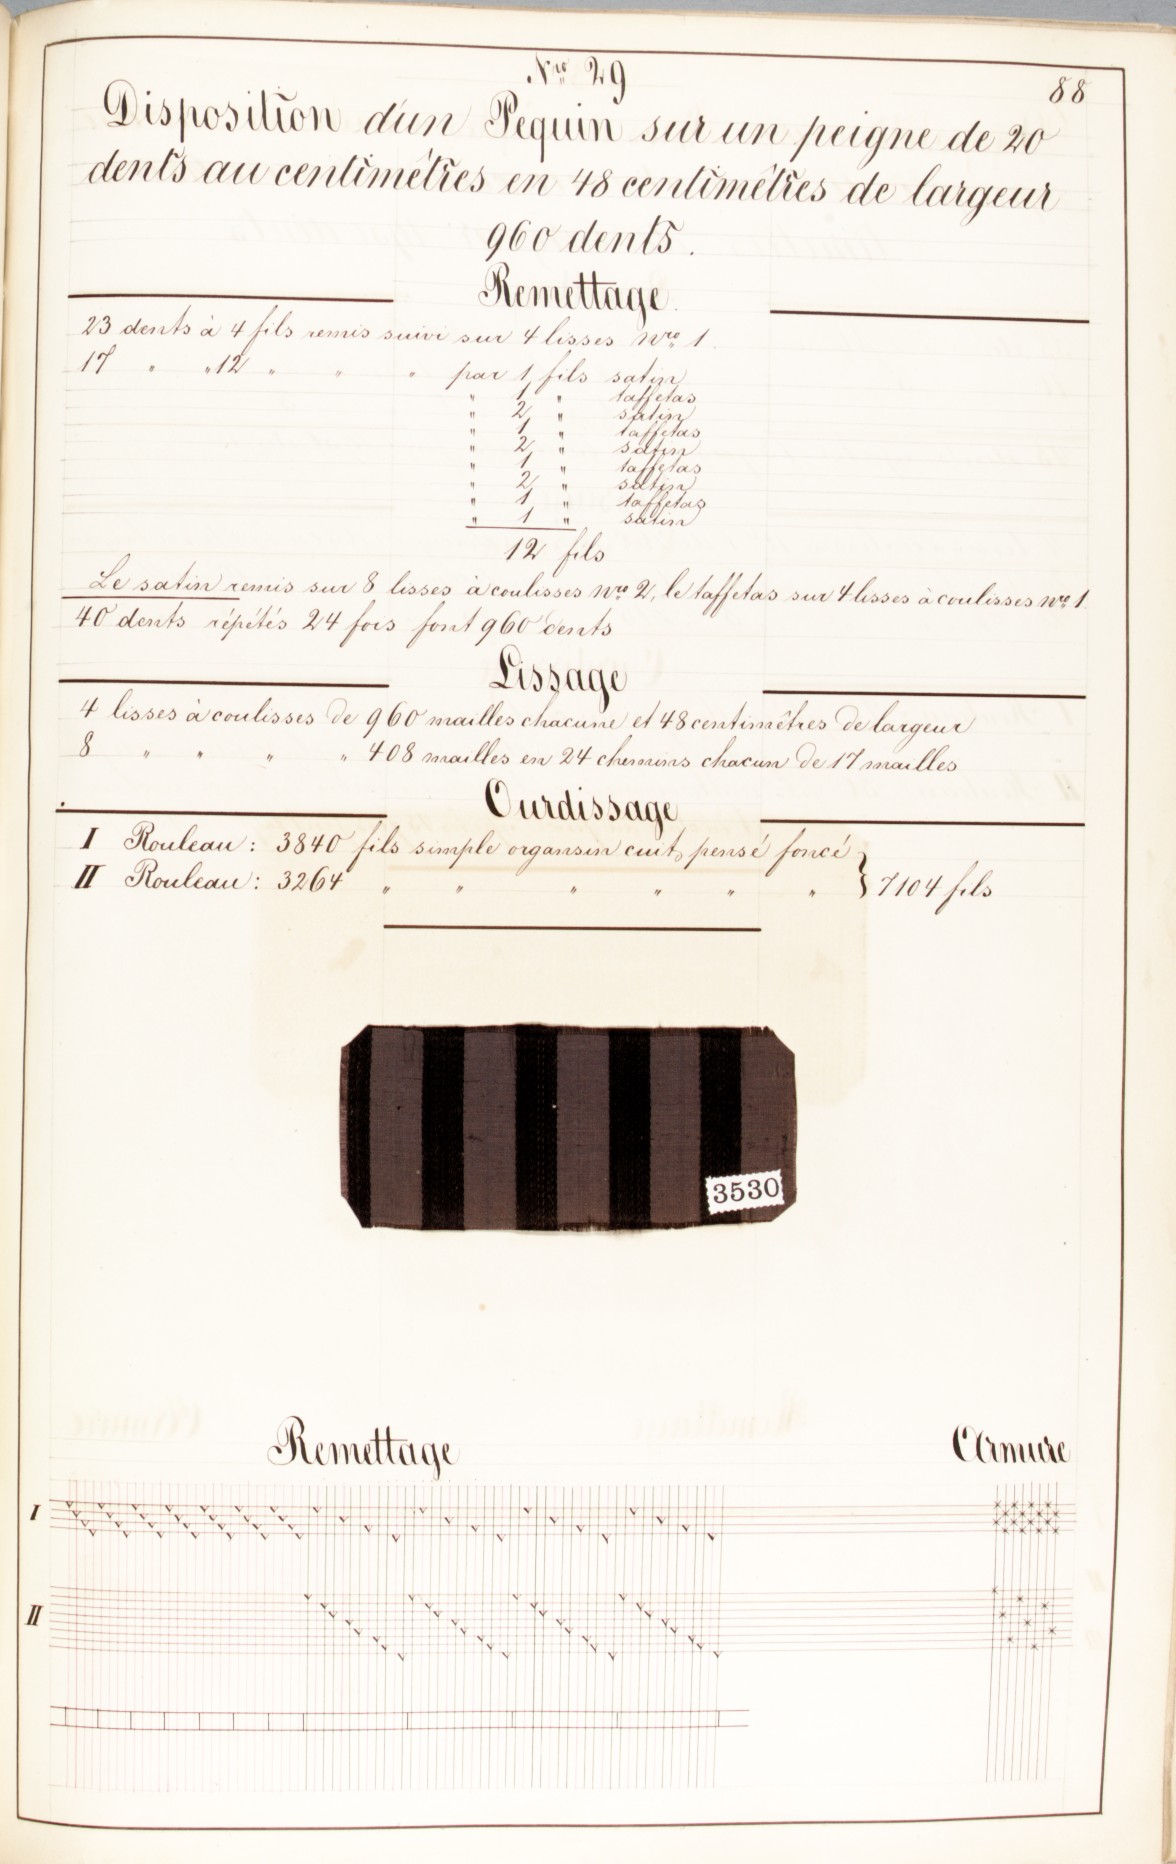 Nro 29
88
Disposition d'un Pequin sur un peigne de 20
dents au centimêtres en 48 centimêtres de largeur
960 dents.
Remettage.
23 dents à 4 fils remis suivi sur 4 lisses Nro 1.
17 " " 12 " " " par 1 fils satin
" 1 " taffetas
" 2 " satin
" 1 " taffetas
" 2 " satin
" 1 " taffetas
" 2 " satin
" 1 " taffetas
" 1 " satin
12 fils
Le satin remis sur 8 lisses à coulisses Nro 2, le taffetas sur 4 lisses à coulisses Nro 1
40 dents répétés 24 fois font 960 dents
Lissage
4 lisses à coulisses de 960 mailles chacune et 48 centimêtres de largeur
8 " " " " 408 mailles en 24 chemins chacun de 17 mailles
Ourdissage
I Rouleau : 3840 fils simple organsin cuit, pensé foncé
II Rouleau : 3264 " " " " " " } 7104 fils
3530
Remettage
Armure
I
II